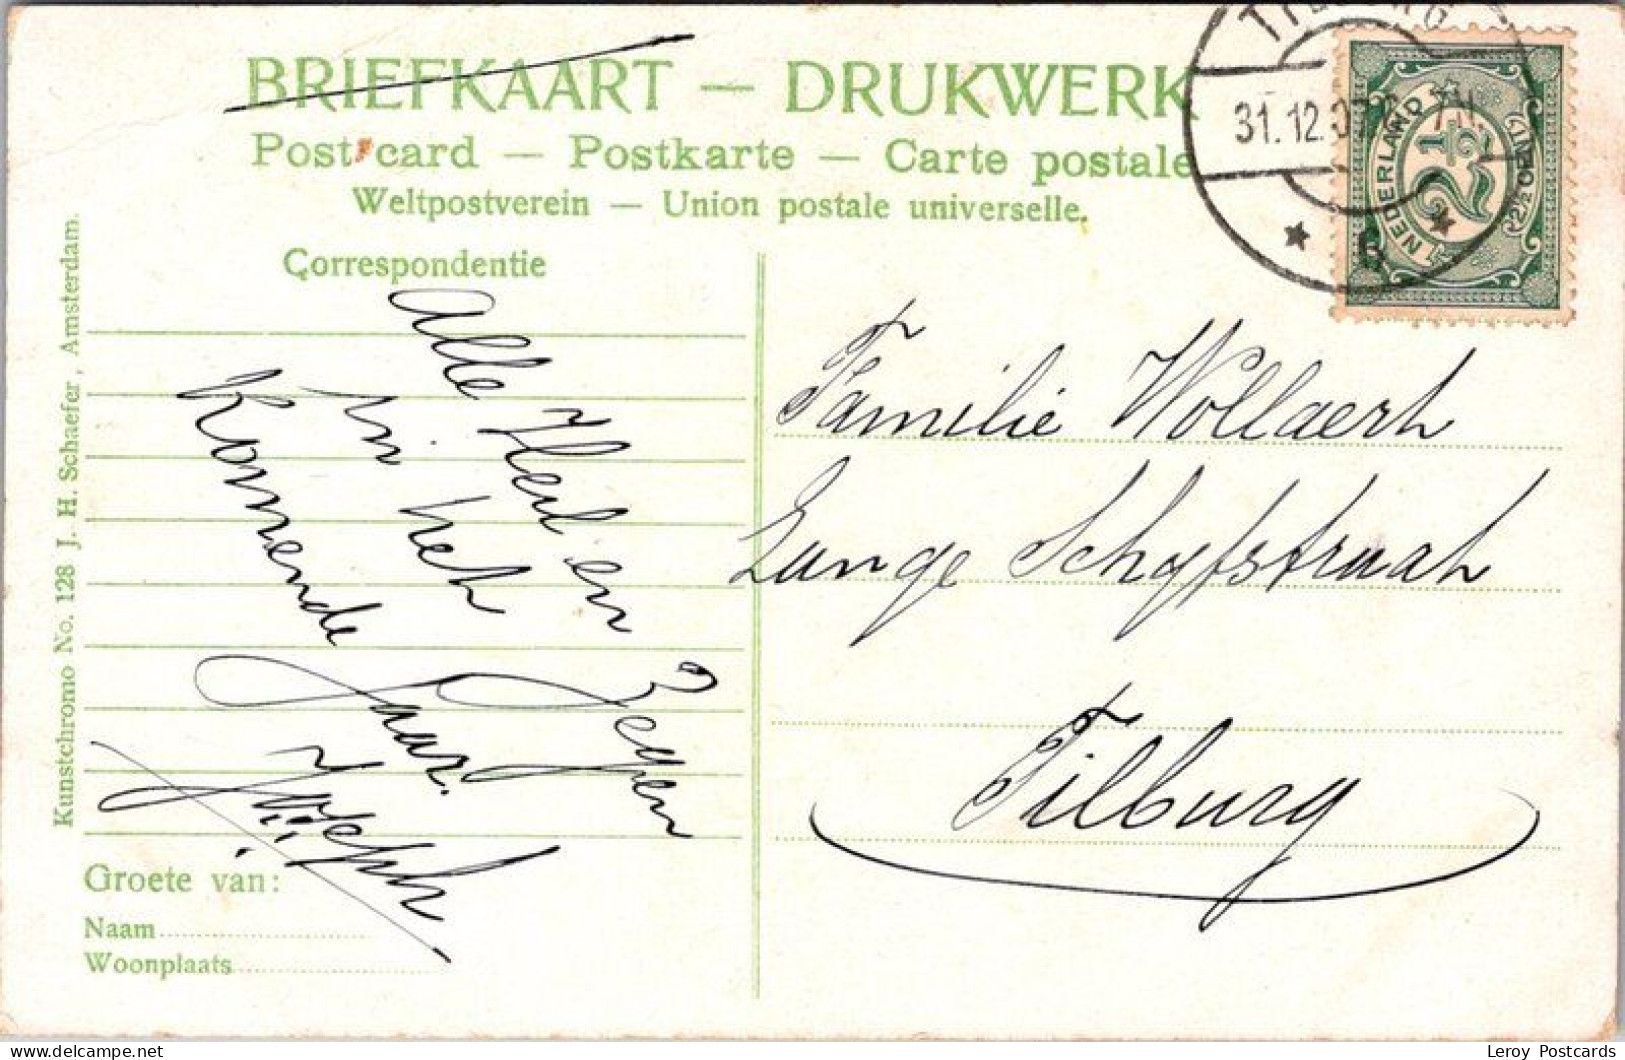 BRIEFKAART — DRUKWERK
Post card — Postkarte — Carte postale
Weltpostverein — Union postale universelle.
TILBURG
31.12.
6
NEDERLAND
2½
(2½ CENT)
Correspondentie
Alle Heil en Zegen
in het
Komende Jaar.
Familie Wollaert
Lange Schyfstraat
Tilburg
Kunstchromo No. 128 J. H. Schaefer, Amsterdam.
Groete van:
Naam
Woonplaats
delcampe.net
Leroy Postcards